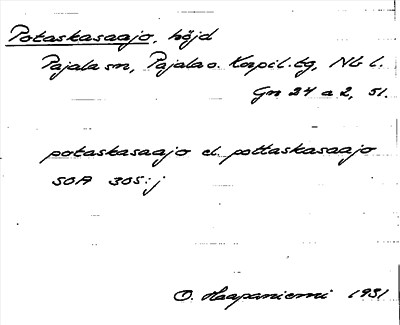 Potaskasaajo, höjd
Pajala sn, Pajala o. Korpil. tg, Nb l.
Gn 24 a 2, 51.
potaskasaajo el. pottaskasaajo
SOA 305:j
O. Haapaniemi 1931